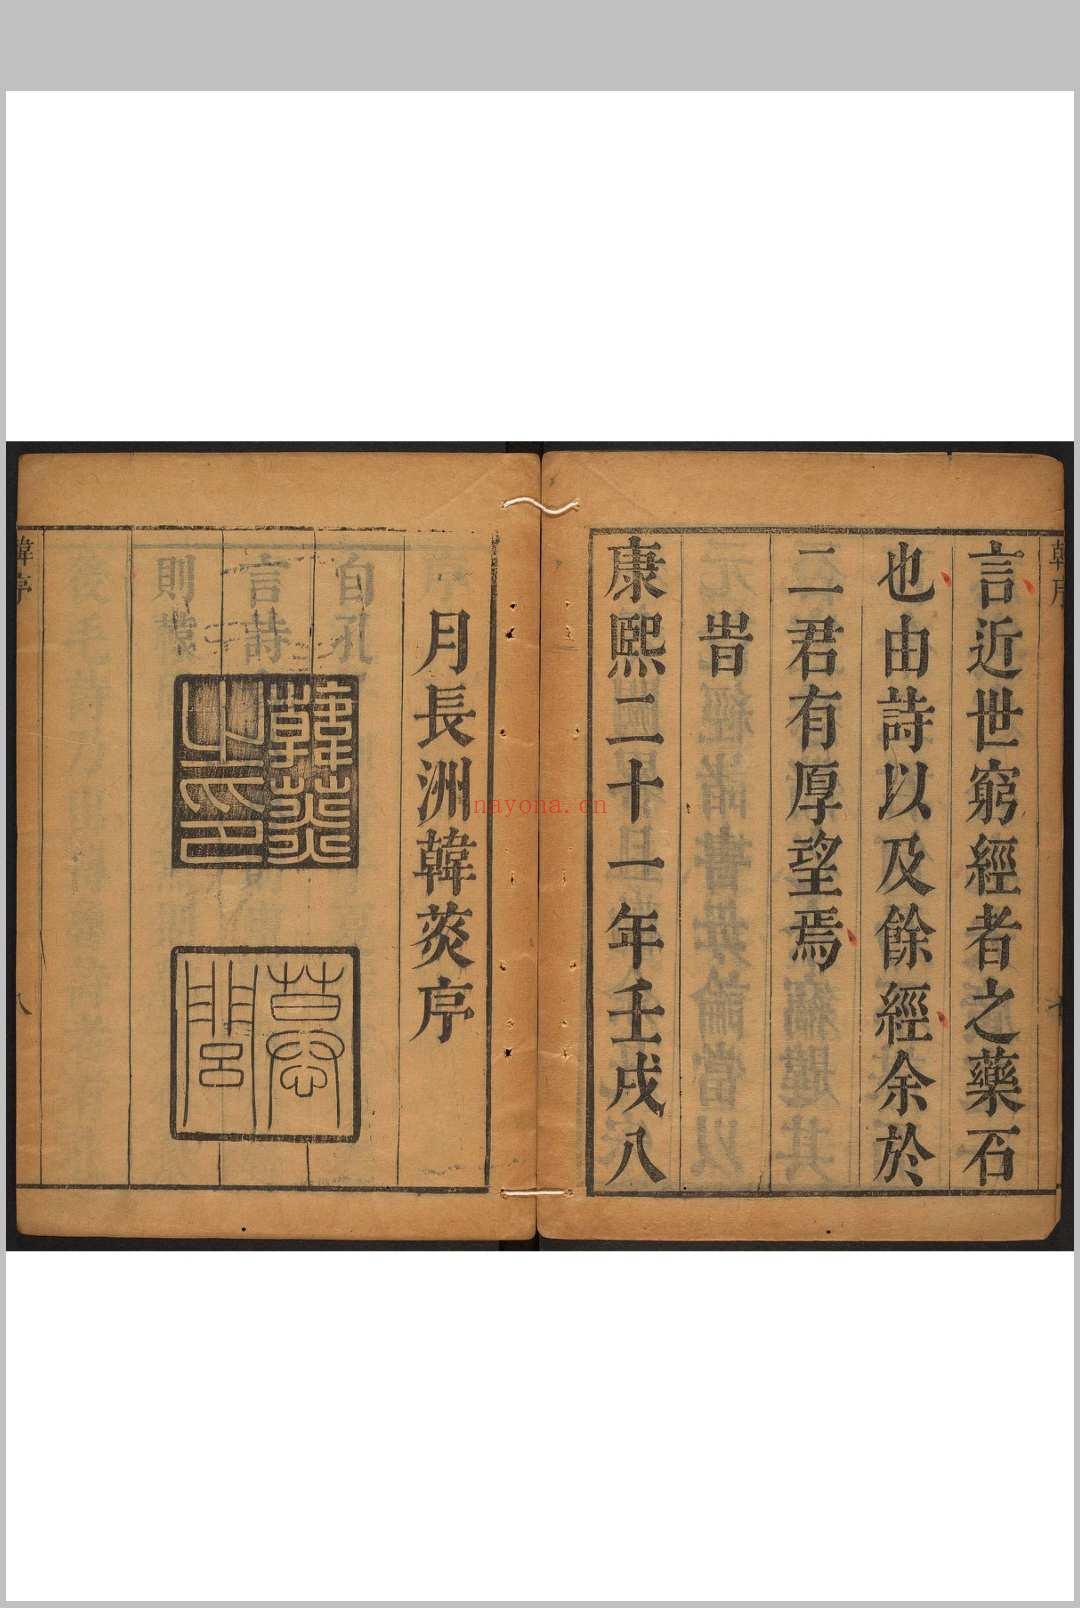 言近世窮經者之藥石
也由詩以及餘經余於
二君有厚望焉
旹
康熙二十一年壬戌八
月長洲韓菼序
韓菼之印
慕廬
韓序
韓序
八
nayona.cn